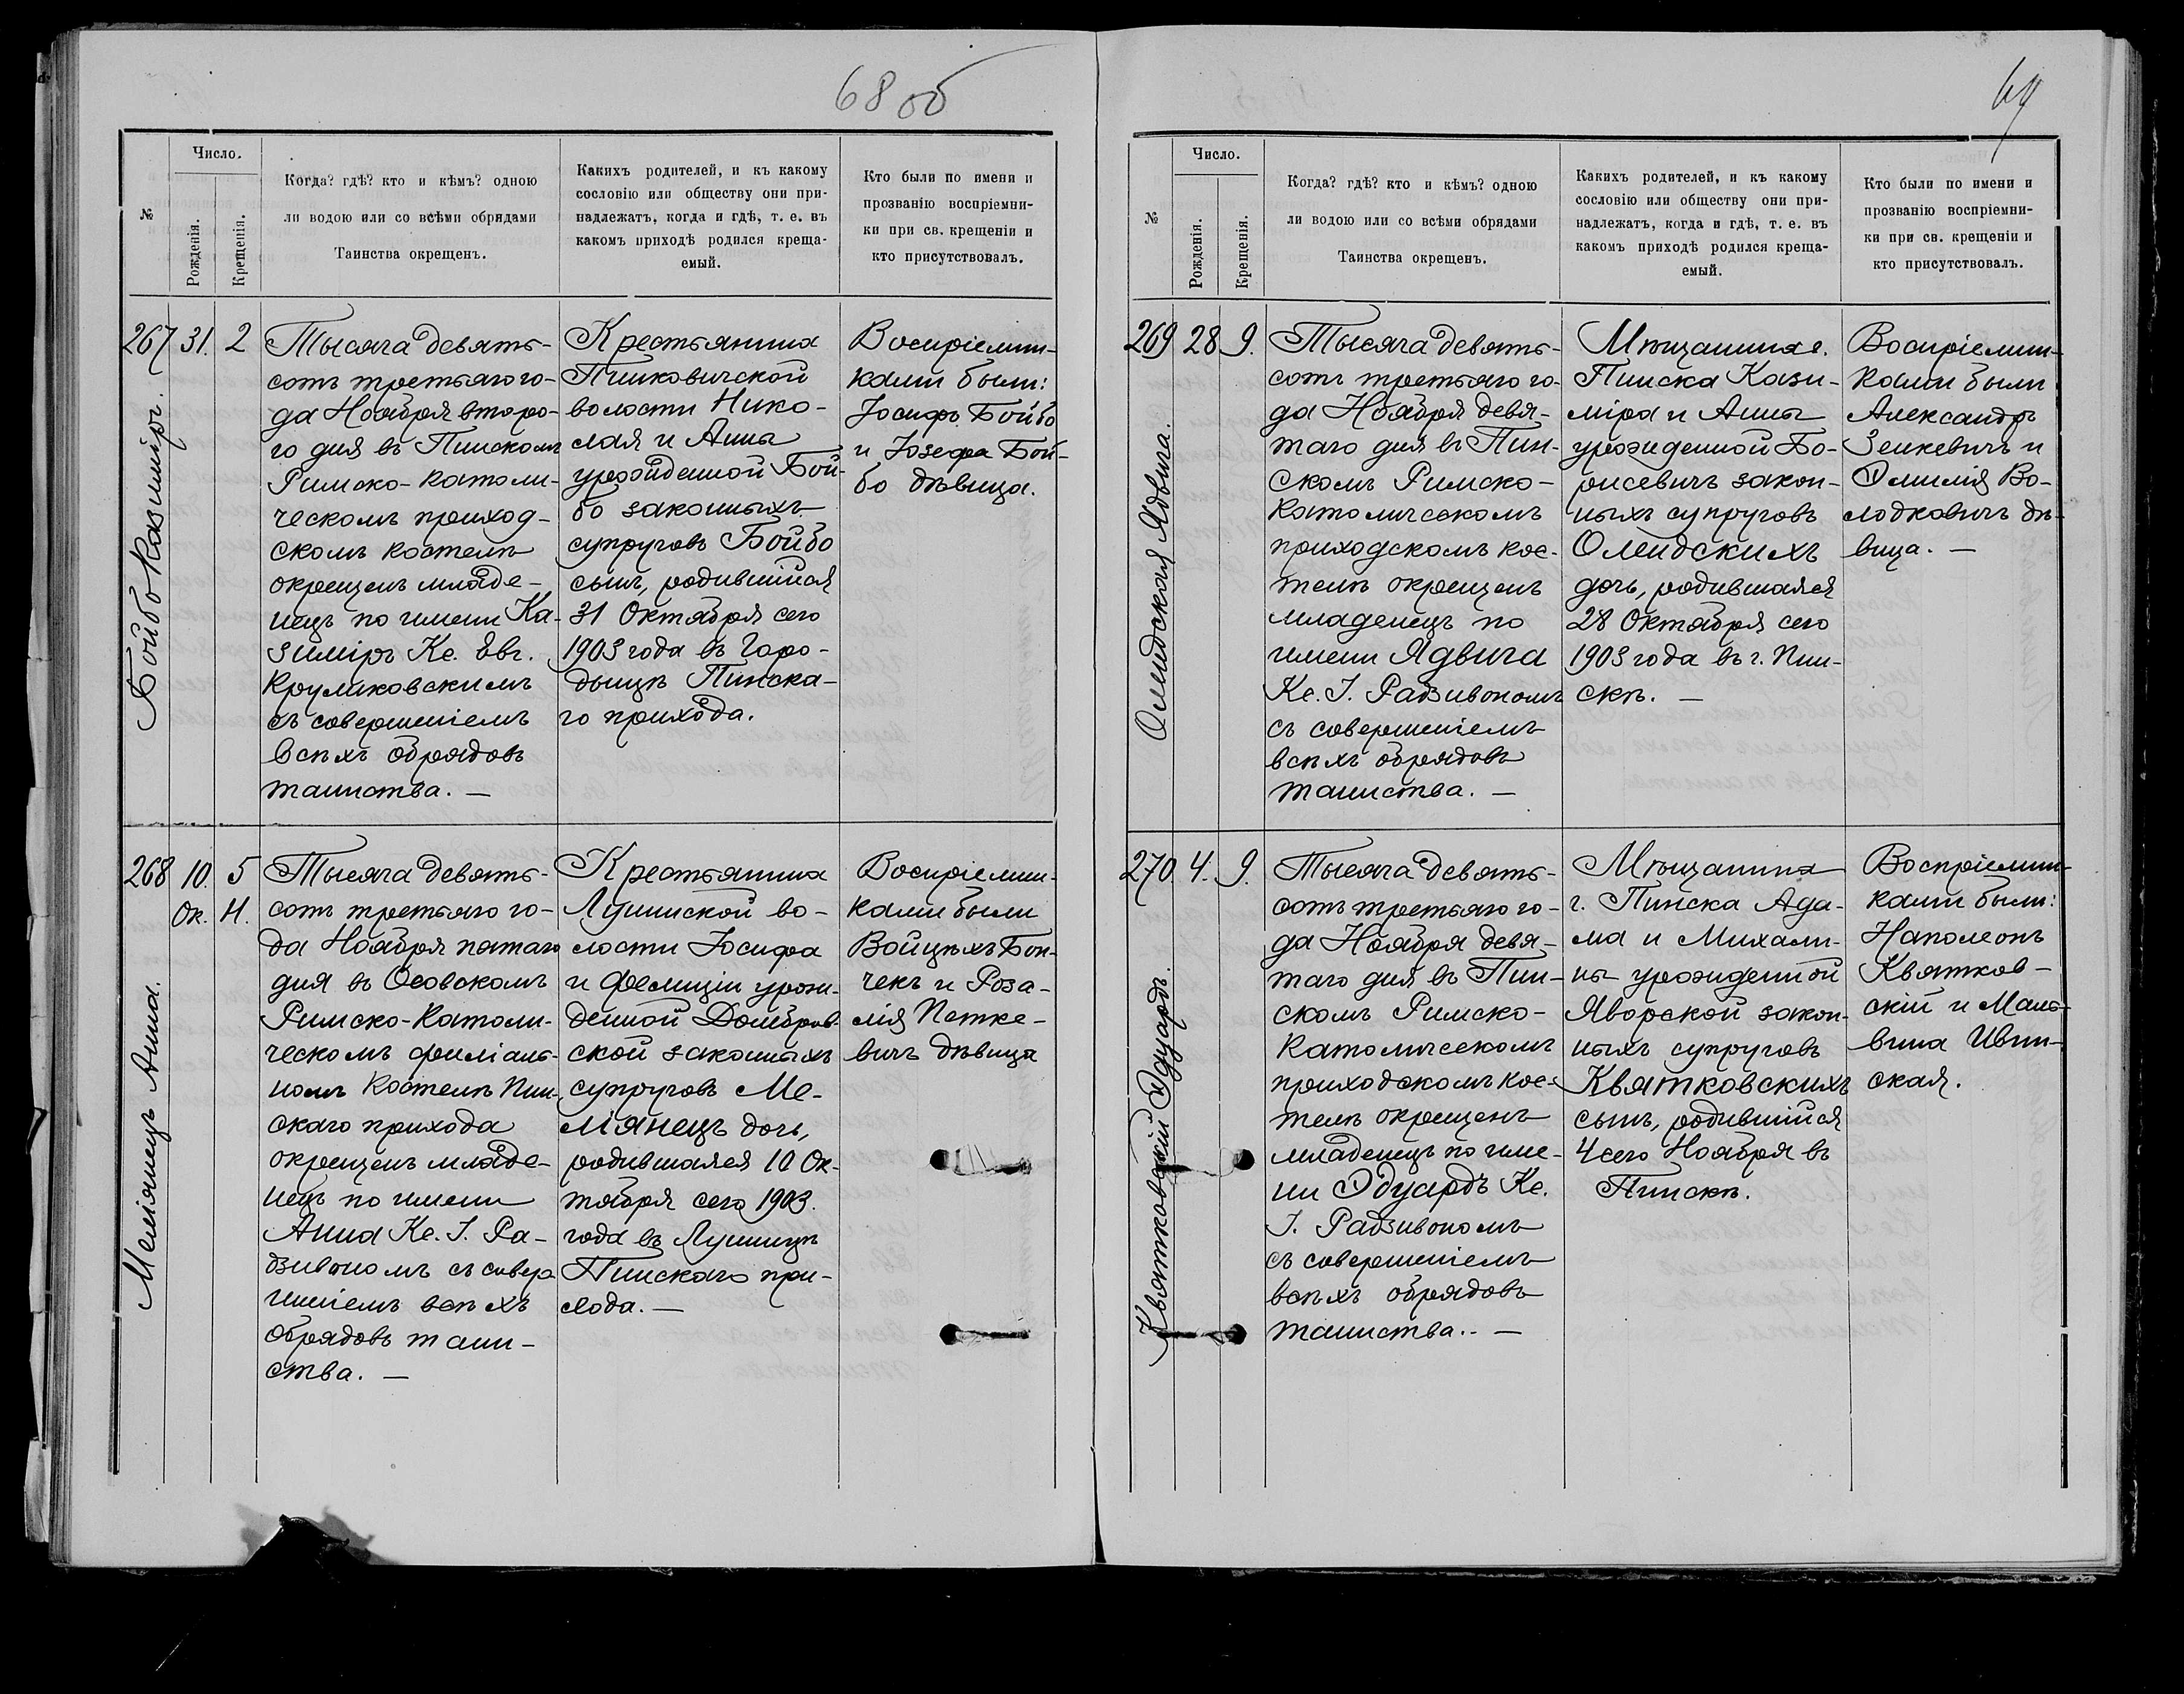 68 об
№
Число.
Рожденія.
Крещенія.
Когда? гдѣ? кто и кѣмъ? одною
ли водою или со всѣми обрядами
Таинства окрещенъ.
Какихъ родителей, и къ какому
сословію или обществу они при-
надлежатъ, когда и гдѣ, т. е. въ
какомъ приходѣ родился креща-
емый.
Кто были по имени и
прозванію воспріемни-
ки при св. крещеніи и
кто присутствовалъ.
267 31. 2
Бойбо Казиміръ.
Тысяча девять-
сотъ третьяго го-
да Ноября второ-
го дня въ Пинскомъ
Римско-Католи-
ческомъ приход-
скомъ костелѣ
окрещенъ младе-
нецъ по имени Ка-
зиміръ Кс. Евг.
Круликовскимъ
съ совершеніемъ
всѣхъ обрядовъ
таинства. —
Крестьянина
Пинковичской
волости Нико-
лая и Анны
урожденной Бой-
бо законныхъ
супруговъ Бойбо
сынъ, родившійся
31 Октября сего
1903 года въ Горо-
дыщѣ Пинска-
го прихода.
Воспріемни-
ками были:
Іосифъ Бойбо
и Юзефа Бой-
бо дѣвица.
268 10. 5
Ок. Н.
Меліянецъ Анна.
Тысяча девять-
сотъ третьяго го-
да Ноября пятаго
дня въ Осовскомъ
Римско-Католи-
ческомъ филіаль-
номъ Костелѣ Пин-
скаго прихода
окрещенъ младе-
нецъ по имени
Анна Кс. І. Ра-
дзивономъ съ совер-
шеніемъ всѣхъ
обрядовъ таин-
ства. —
Крестьянина
Лунинской во-
лости Іосифа
и Фелиціи урож-
денной Домбров-
ской законныхъ
супруговъ Ме-
ліянецъ дочь,
родившаяся 10 Ок-
тября сего 1903.
года въ Лунинцѣ
Пинскаго при-
хода. —
Воспріемни-
ками были
Войцѣхъ Бон-
чекъ и Роза-
лія Петке-
вичъ дѣвица
69
№
Число.
Рожденія.
Крещенія.
Когда? гдѣ? кто и кѣмъ? одною
ли водою или со всѣми обрядами
Таинства окрещенъ.
Какихъ родителей, и къ какому
сословію или обществу они при-
надлежатъ, когда и гдѣ, т. е. въ
какомъ приходѣ родился креща-
емый.
Кто были по имени и
прозванію воспріемни-
ки при св. крещеніи и
кто присутствовалъ.
269 28 9.
Олендская Ядвига.
Тысяча девять-
сотъ третьяго го-
да Ноября девя-
таго дня въ Пин-
скомъ Римско-
Католическомъ
приходскомъ кос-
телѣ окрещенъ
младенецъ по
имени Ядвига
Кс. І. Радзивономъ
съ совершеніемъ
всѣхъ обрядовъ
таинства. —
Мѣщанина г.
Пинска Кази-
міра и Анны
урожденной Бо-
рисевичъ закон-
ныхъ супруговъ
Олендскихъ
дочь, родившаяся
28 Октября сего
1903 года въ г. Пин-
скѣ. —
Воспріемни-
ками были
Александръ
Зенкевичъ и
Эмилія Во-
лодковичъ дѣ-
вица. —
270. 4. 9.
Квятковскій Эдуардъ.
Тысяча девять-
сотъ третьяго го-
да Ноября девя-
таго дня въ Пин-
скомъ Римско-
Католическомъ
приходскомъ кос-
телѣ окрещенъ
младенецъ по име-
ни Эдуардъ Кс.
І. Радзивономъ
съ совершеніемъ
всѣхъ обрядовъ
таинства. —
Мѣщанина
г. Пинска Ада-
ма и Михали-
ны урожденной
Яворской закон-
ныхъ супруговъ
Квятковскихъ
сынъ, родившійся
4 сего Ноября въ
Пинскѣ.
Воспріемни-
ками были:
Наполеонъ
Квятков-
скій и Маль-
вина Ивин-
ская.